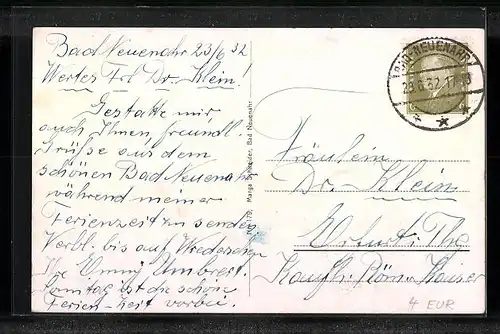 Bad Neuenahr 23/6 32
Wertes Frl Dr. Klein!
Gestatte mir
auch Ihnen, freundl
Grüße aus dem
schönen Bad Neuenahr
während meiner
Ferienzeit zu senden
Verbl. bis auf Wiedersehn
Ihr Emmy Umbreit.
Sonntag ist die schöne
Ferien-Zeit vorbei.
BAD-NEUENAHR
23.6.32.17-18
Bad Neuenahr
Fräulein
Dr. Klein
Erfurt. Th.
Kaufh. Röm. Kaiser
4 EUR